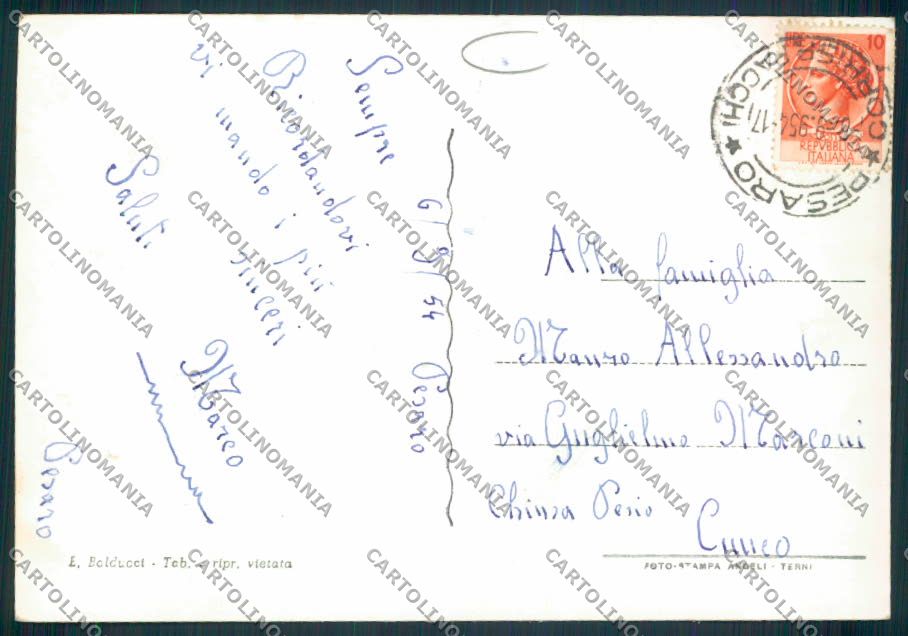 Sempre
Ricordandovi
vi mando i più
sinceri
Saluti
Marco
6/9/54 Pesaro
Pesaro
Alla famiglia
Mauro Allessandro
via Guglielmo Marconi
Chiusa Pesio
Cuneo
10
REPVBBLICA
ITALIANA
PESARO
CORRISP
PACCHI
954-17
E. Balducci - Tab. - ripr. vietata
FOTO-STAMPA ANGELI - TERNI
CARTOLINOMANIA